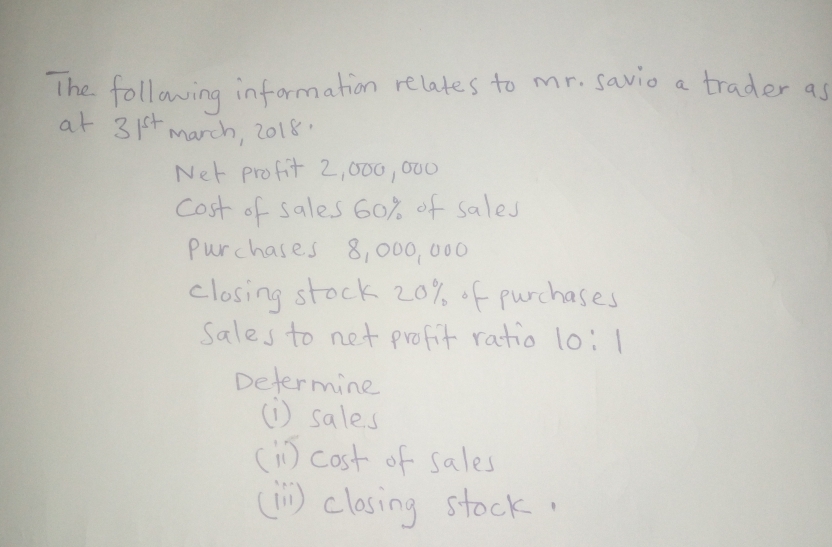 The following information relates to mr. Savio a trader as
at 31st march, 2018.
Net profit 2,000,000
Cost of sales 60% of sales
Purchases 8,000,000
closing stock 20% of purchases
Sales to net profit ratio 10:1
Determine
(i) sales
(ii) cost of sales
(iii) closing stock.